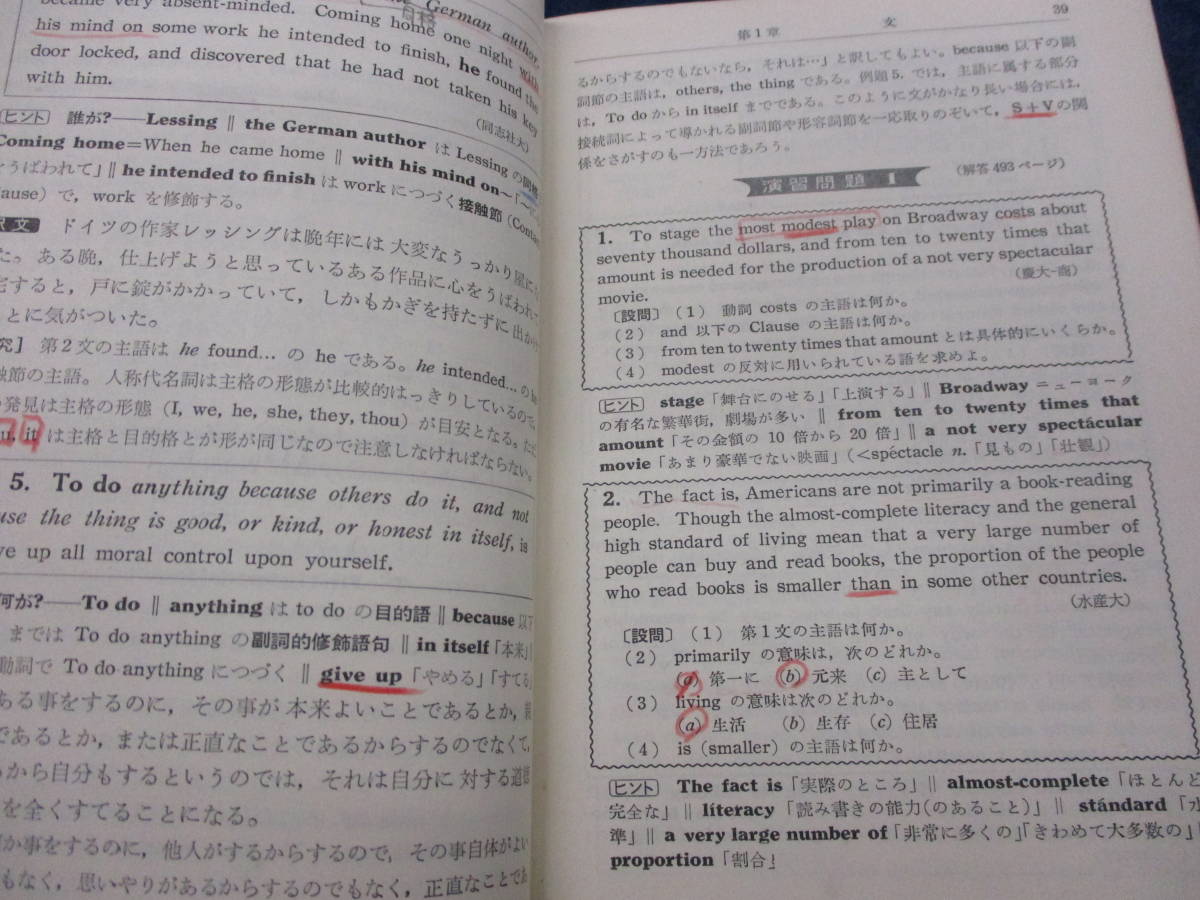 became very absent-minded. Coming home one night with
his mind on some work he intended to finish, he found the
door locked, and discovered that he had not taken his key
with him.
(同志社大)
ヒント 誰が?——Lessing ‖ the German author は Lessing の同格
Coming home=When he came home ‖ with his mind on~「~に
うばわれて」‖ he intended to finish は work につづく接触節 (Contact
Clause) で,work を修飾する。
訳文 ドイツの作家レッシングは晩年には 大変なうっかり屋に
た。ある晩,仕上げようと思っているある作品に心をうばわれて
宅すると,戸に錠がかかっていて,しかもかぎを持たずに 出か
ことに気がついた。
究] 第2文の主語は he found... の he である。he intended... の he
触節の主語。人称代名詞は主格の形態が比較的はっきりしているので,
の発見は主格の形態 (I, we, he, she, they, thou) が目安となる。ただ
you, it は主格と目的格とが形が同じなので注意しなければならない。
5. To do anything because others do it, and not
because the thing is good, or kind, or honest in itself, is
give up all moral control upon yourself.
何が?——To do ‖ anything は to do の目的語 ‖ because 以下
までは To do anything の副詞的修飾語句 ‖ in itself「本来」
動詞で To do anything につづく ‖ give up「やめる」「すてる」
ある事をするのに,その事が 本来よいことであるとか,
であるとか,または正直なことであるからするのでなくて,
から自分もするというのでは,それは自分に 対する道徳
を全くすてることになる。
か事をするのに,他人がするからするので,その事自体がよい
もなく,思いやりがあるからするのでもなく,正直なことであ
第1章 文 39
るからするのでもないなら,それは…」と訳してもよい。because 以下の副
詞節の主語は,others, the thing である。例題5. では,主語に属する部分
は,To do から in itself までである。このように文がかなり長い場合には,
接続詞によって導かれる副詞節や形容詞節を一応取りのぞいて,S+V の関
係をさがすのも一方法であろう。
演習問題 I (解答 493 ページ)
1. To stage the most modest play on Broadway costs about
seventy thousand dollars, and from ten to twenty times that
amount is needed for the production of a not very spectacular
movie.
(慶大-商)
〔設問〕(1) 動詞 costs の主語は何か。
(2) and 以下の Clause の主語は何か。
(3) from ten to twenty times that amount とは具体的にいくらか。
(4) modest の反対に用いられている語を求めよ。
ヒント stage「舞台にのせる」「上演する」‖ Broadway ニューヨーク
の有名な繁華街,劇場が多い ‖ from ten to twenty times that
amount「その金額の 10 倍から 20 倍」‖ a not very spectácular
movie「あまり豪華でない映画」(<spéctacle n.「見もの」「壮観」)
2. The fact is, Americans are not primarily a book-reading
people. Though the almost-complete literacy and the general
high standard of living mean that a very large number of
people can buy and read books, the proportion of the people
who read books is smaller than in some other countries.
(水産大)
〔設問〕(1) 第1文の主語は何か。
(2) primarily の意味は,次のどれか。
(a) 第一に (b) 元来 (c) 主として
(3) living の意味は次のどれか。
(a) 生活 (b) 生存 (c) 住居
(4) is (smaller) の主語は何か。
ヒント The fact is「実際のところ」‖ almost-complete「ほとんど
完全な」‖ líteracy「読み書きの能力(のあること)」‖ stándard「水
準」‖ a very large number of「非常に多くの」「きわめて大多数の」
proportion「割合」